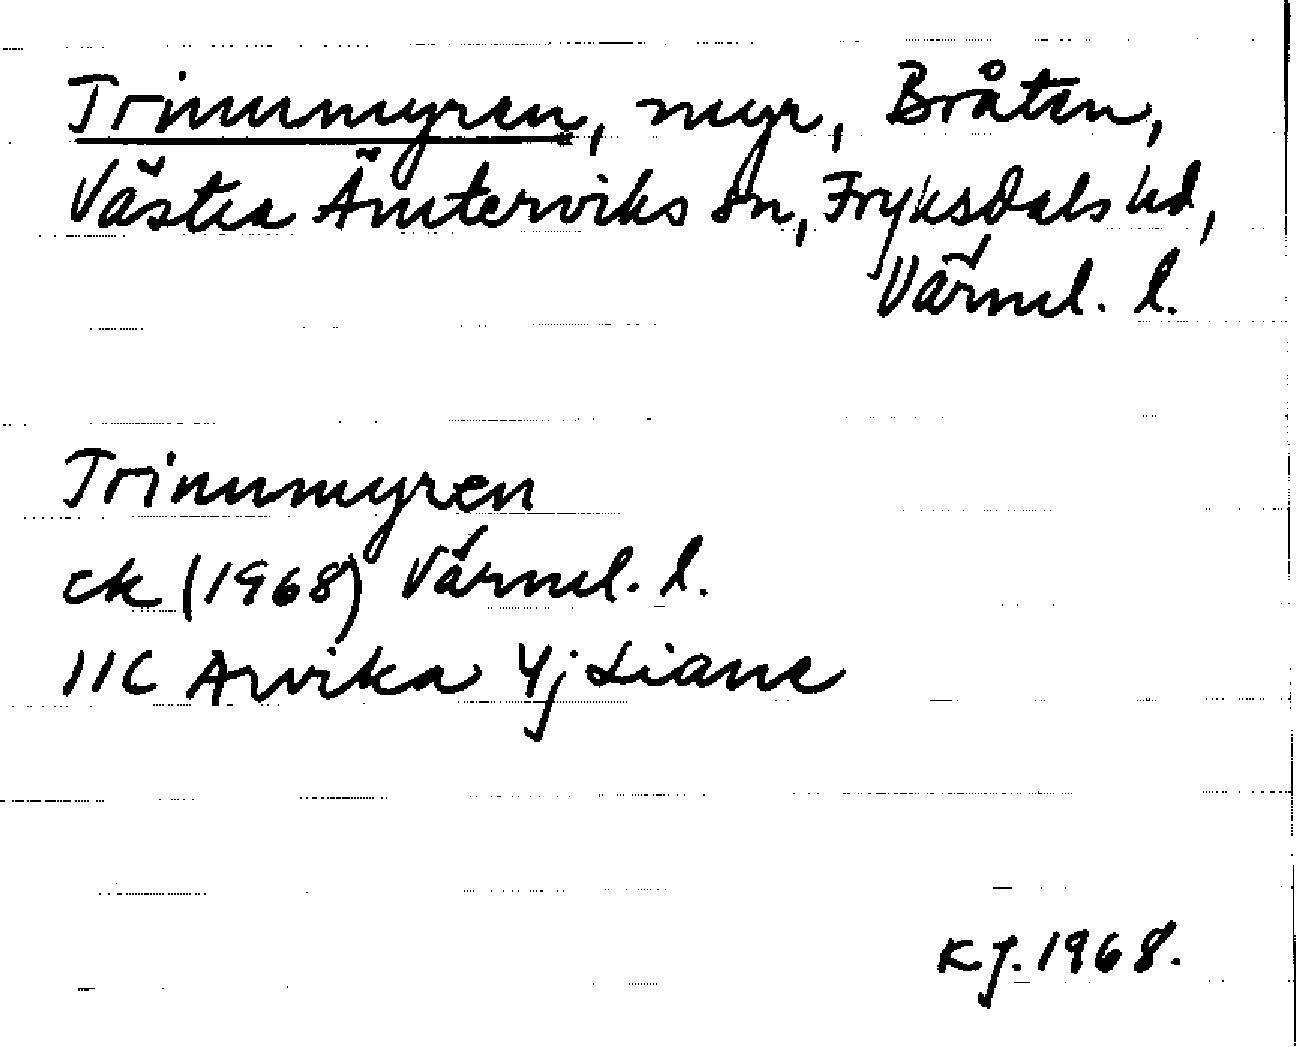 Trinumyren, myr, Bråten,
Västra Ämterviks sn, Fryksdals hd,
Värml. l.
Trinumyren
ek (1968) Värml. l.
11C Arvika 4j Liane
KJ. 1968.